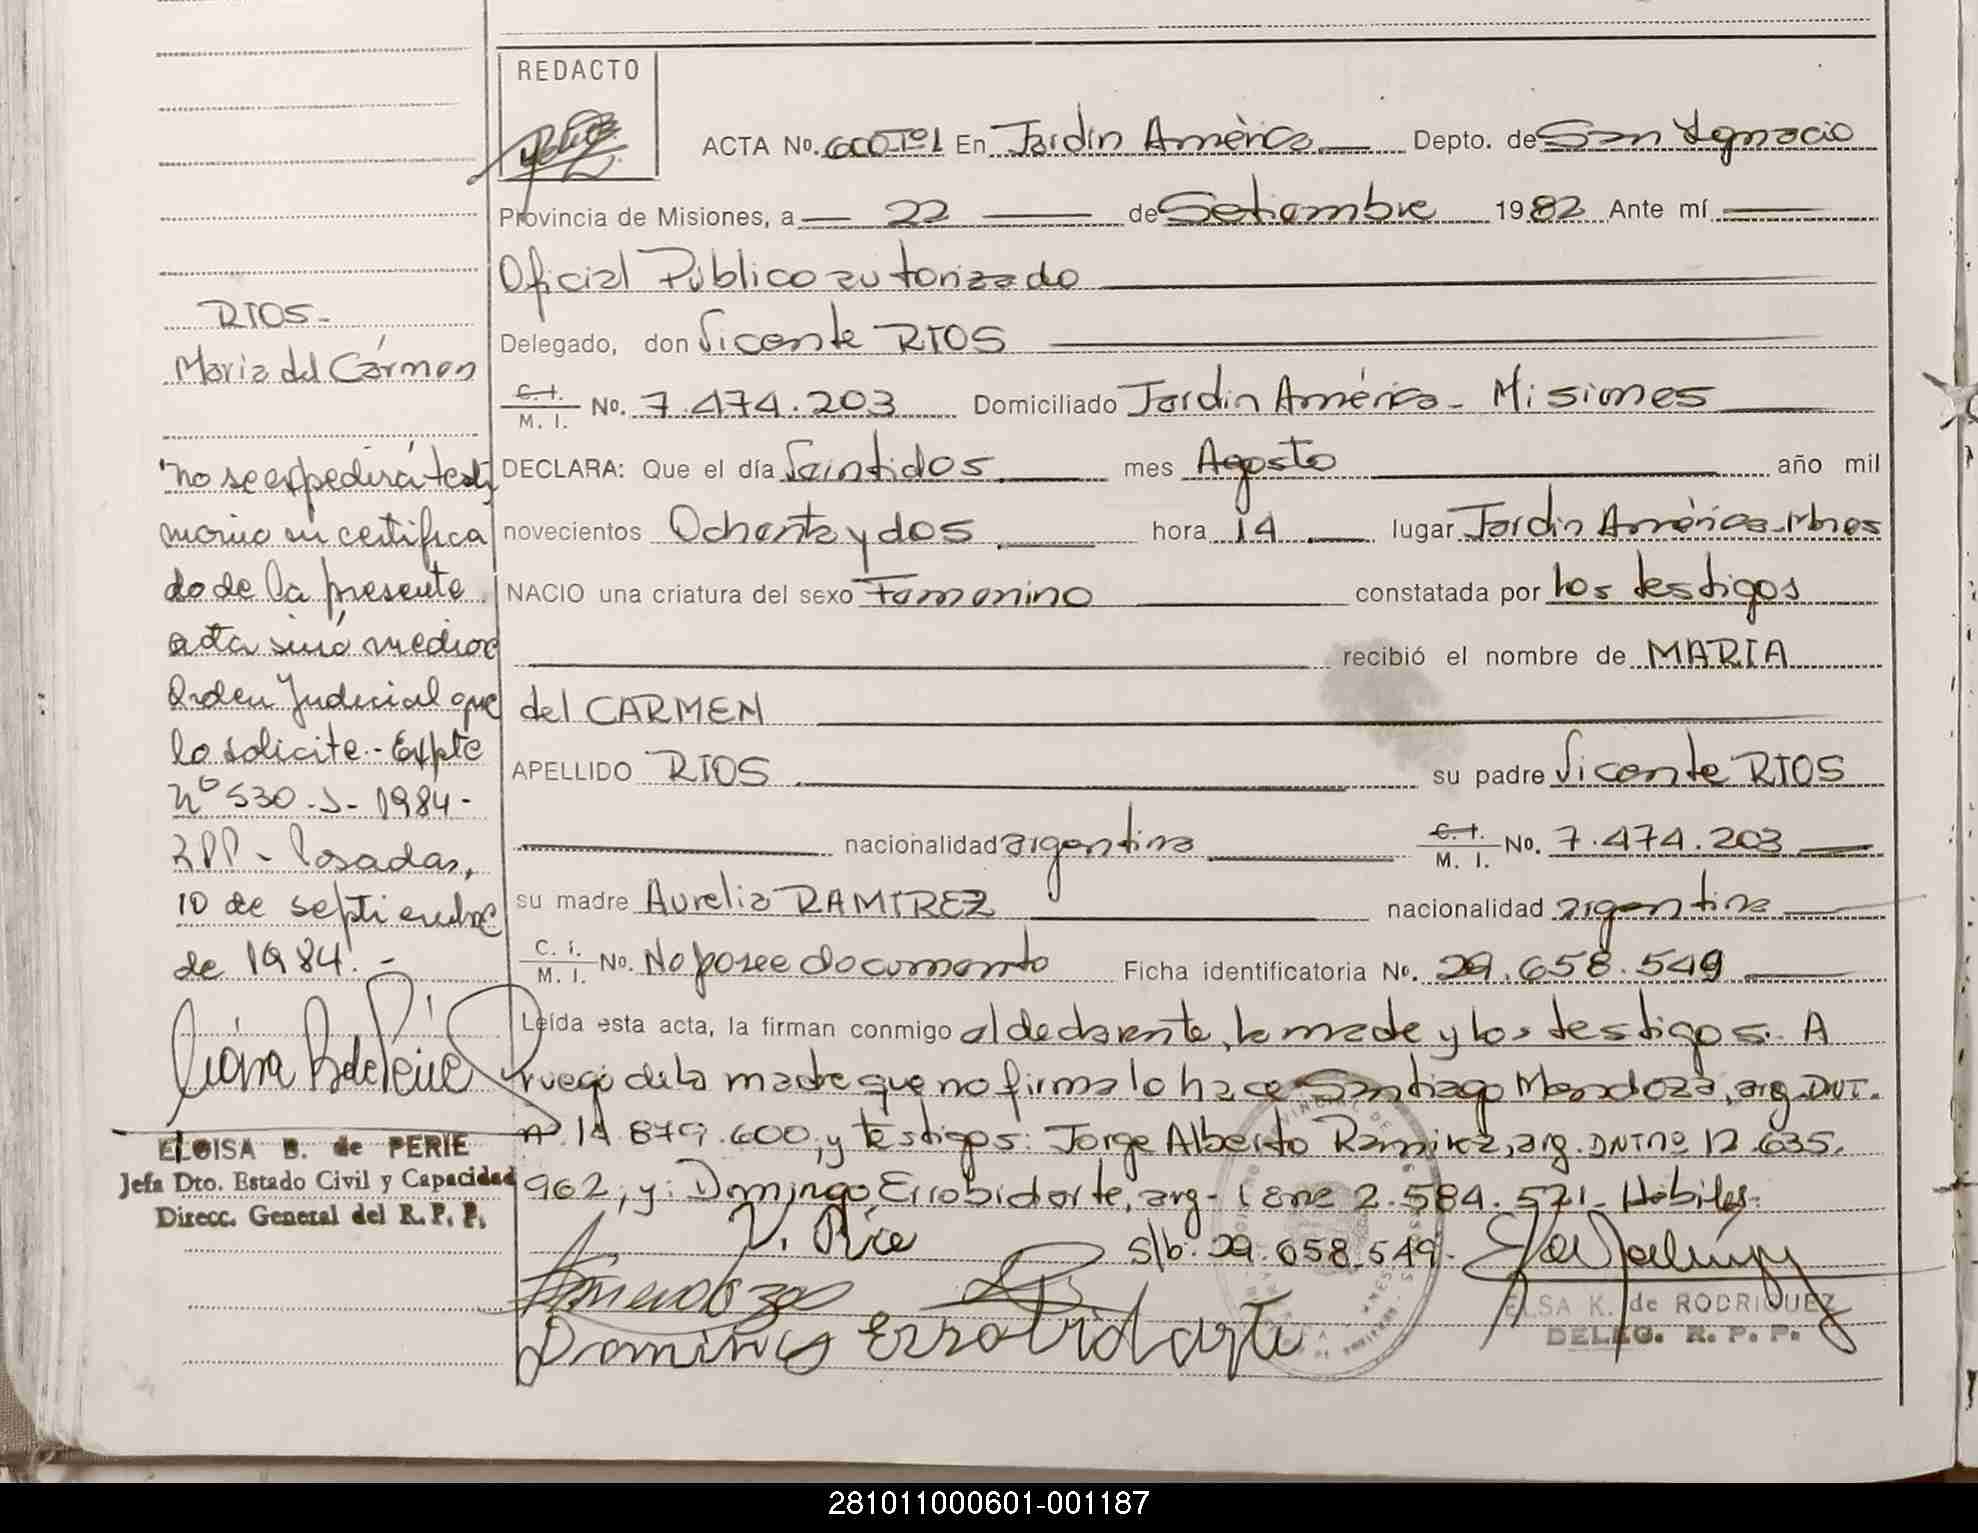 REDACTO
ACTA No. 600 Tº1 En Jardín América Depto. de San Ignacio
Provincia de Misiones, a 22 de Setiembre 1982 Ante mí
Oficial Público autorizado
Delegado, don Vicente RIOS
C. I. / M. I. No. 7.474.203 Domiciliado Jardín América - Misiones
DECLARA: Que el día Veintidos mes Agosto año mil
novecientos Ochenta y dos hora 14 lugar Jardín América - Mnes
NACIO una criatura del sexo Femenino constatada por los testigos
recibió el nombre de MARIA
del CARMEN
APELLIDO RIOS su padre Vicente RIOS
nacionalidad argentina C. I. / M. I. No. 7.474.203
su madre Aurelia RAMIREZ nacionalidad argentina
C. I. / M. I. No. No posee documento Ficha identificatoria No. 29.658.549
Leída esta acta, la firman conmigo el declarante, la madre y los testigos. A
ruego de la madre que no firma lo hace Santiago Mendoza, arg. DNI.
nº 14.879.600, y testigos: Jorge Alberto Ramirez, arg. DNI nº 12.635.
962, y: Domingo Errobidarte, arg- 2.584.571- Hábiles.
V. Rios
S/b: 29.658.549.
Domingo Errobidarte
ELSA K. de RODRIGUEZ
DELEG. R. P. P.
RIOS-
María del Cármen
"No se expedirá testi
monio ni certifica
do de la presente
acta sinó medioe
Orden Judicial que
lo solicite.- Expte
Nº 530-S-1984-
RPP- Posadas,
10 de septiembre
de 1984.-
ELOISA B. de PERIE
Jefa Dto. Estado Civil y Capacidad
Direcc. General del R. P. P.
281011000601-001187